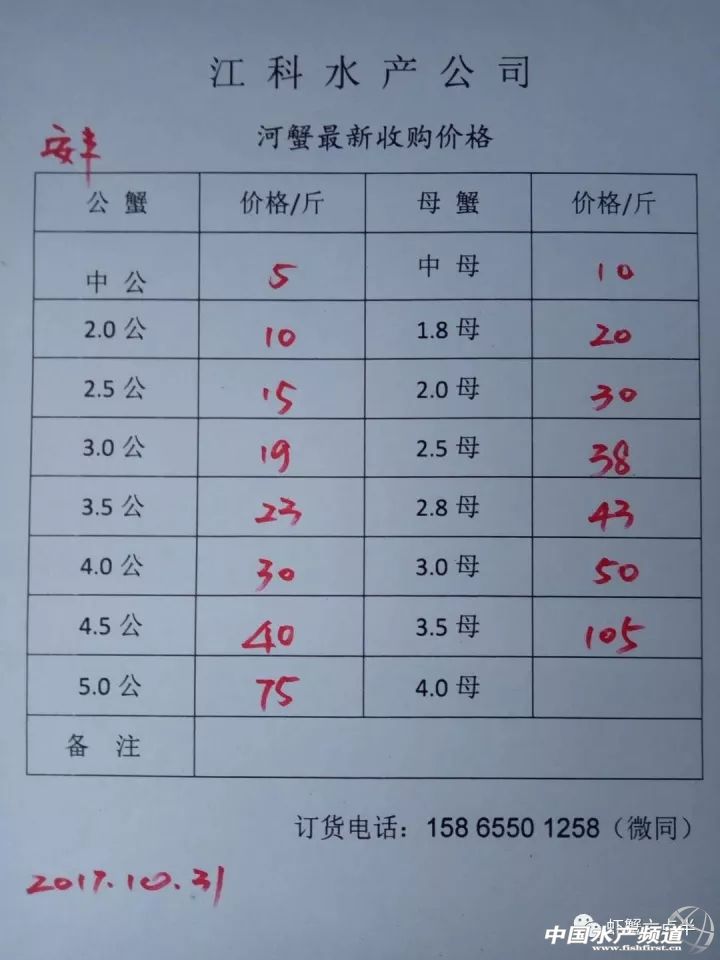 江科水产公司
安丰
河蟹最新收购价格
公蟹 价格/斤 母蟹 价格/斤
中公 5 中母 10
2.0公 10 1.8母 20
2.5公 15 2.0母 30
3.0公 19 2.5母 38
3.5公 23 2.8母 43
4.0公 30 3.0母 50
4.5公 40 3.5母 105
5.0公 75 4.0母
备注
订货电话：158 6550 1258（微同）
2017.10.31
虾蟹六点半
中国水产频道
www.fishfirst.cn